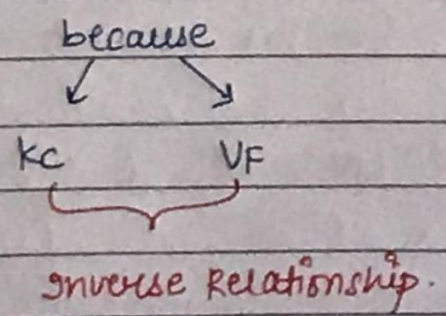 because
KC VF
Inverse Relationship.